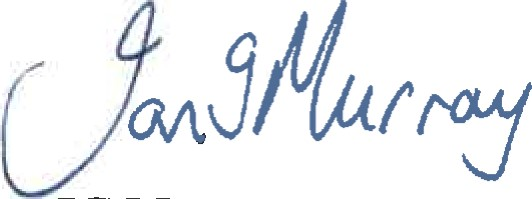 Ian G Murray